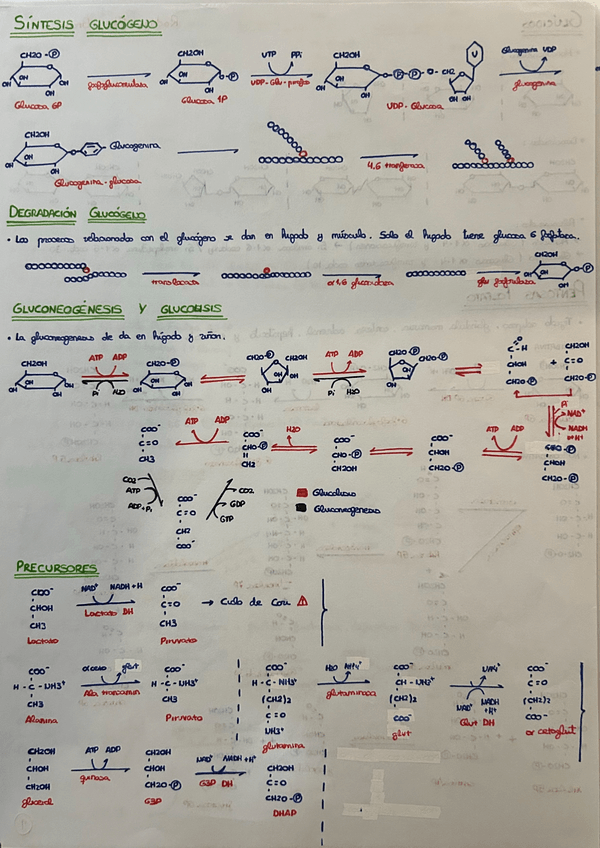 SÍNTESIS GLUCÓGENO
CH2O-P CH2OH UTP PPi CH2OH Glucogenina UDP
Glucosa 6P fosfoglucomutasa Glucosa 1P UDP-Glu-pirofos UDP-Glucosa glucogenina
CH2OH
Glucogenina
Glucogenina-glucosa 4,6 trasferasa
DEGRADACIÓN GLUCÓGENO
• Los procesos relacionados con el glucógeno se dan en hígado y músculo. Solo el hígado tiene glucosa 6 fosfatasa.
traslocasa α1,6 glucosidasa glu fosforilasa
CH2OH
GLUCONEOGÉNESIS Y GLUCOLISIS
• La gluconeogenesis de da en hígado y riñon.
CH2OH ATP ADP CH2O-P CH2OH ATP ADP CH2O-P CH2O-P C-H CH2OH
Pi H2O Pi H2O CHOH + C=O
CH2O-P CH2O-P
Pi NAD+
NADH + H+
COO- ATP ADP COO- H2O COO- COO- ATP ADP
C=O CO-P CHO-P CHOH CHOH
CH3 CH2 CH2OH CH2O-P CH2O-P
CO2 ATP ADP+Pi COO- C=O CH2 COO- CO2 GDP GTP
Glucolisis
Gluconeogenesis
PRECURSORES
COO- NAD+ NADH+H COO-
CHOH Lactato DH C=O → Ciclo de Cori
CH3 CH3
Lactato Piruvato
COO- glut COO- COO- H2O NH4+ COO- NH4+ COO-
H-C-NH3+ Ala transamin H-C-NH3+ H-C-NH3+ glutaminasa CH-NH3+ NAD+ NADH H+ C=O
CH3 CH3 (CH2)2 (CH2)2 Glut DH (CH2)2
Alanina Piruvato C=O COO- COO-
NH3+ glutamina glut α cetoglut
CH2OH ATP ADP CH2OH NAD+ NADH+H+ CH2OH
CHOH CHOH G3P DH C=O
CH2OH CH2O-P CH2O-P
glicerol G3P DHAP